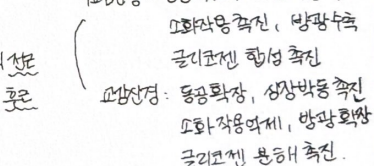 소화작용 촉진, 방광수축
글리코젠 합성 촉진
전근
후근
교감신경 : 동공확장, 심장박동 촉진
소화작용억제, 방광확장
글리코젠 분해 촉진.